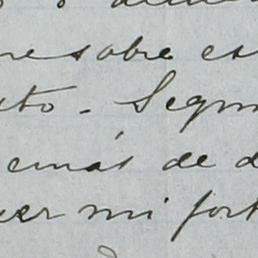 re sobre es
to - Segu
emás de d
er mi fort